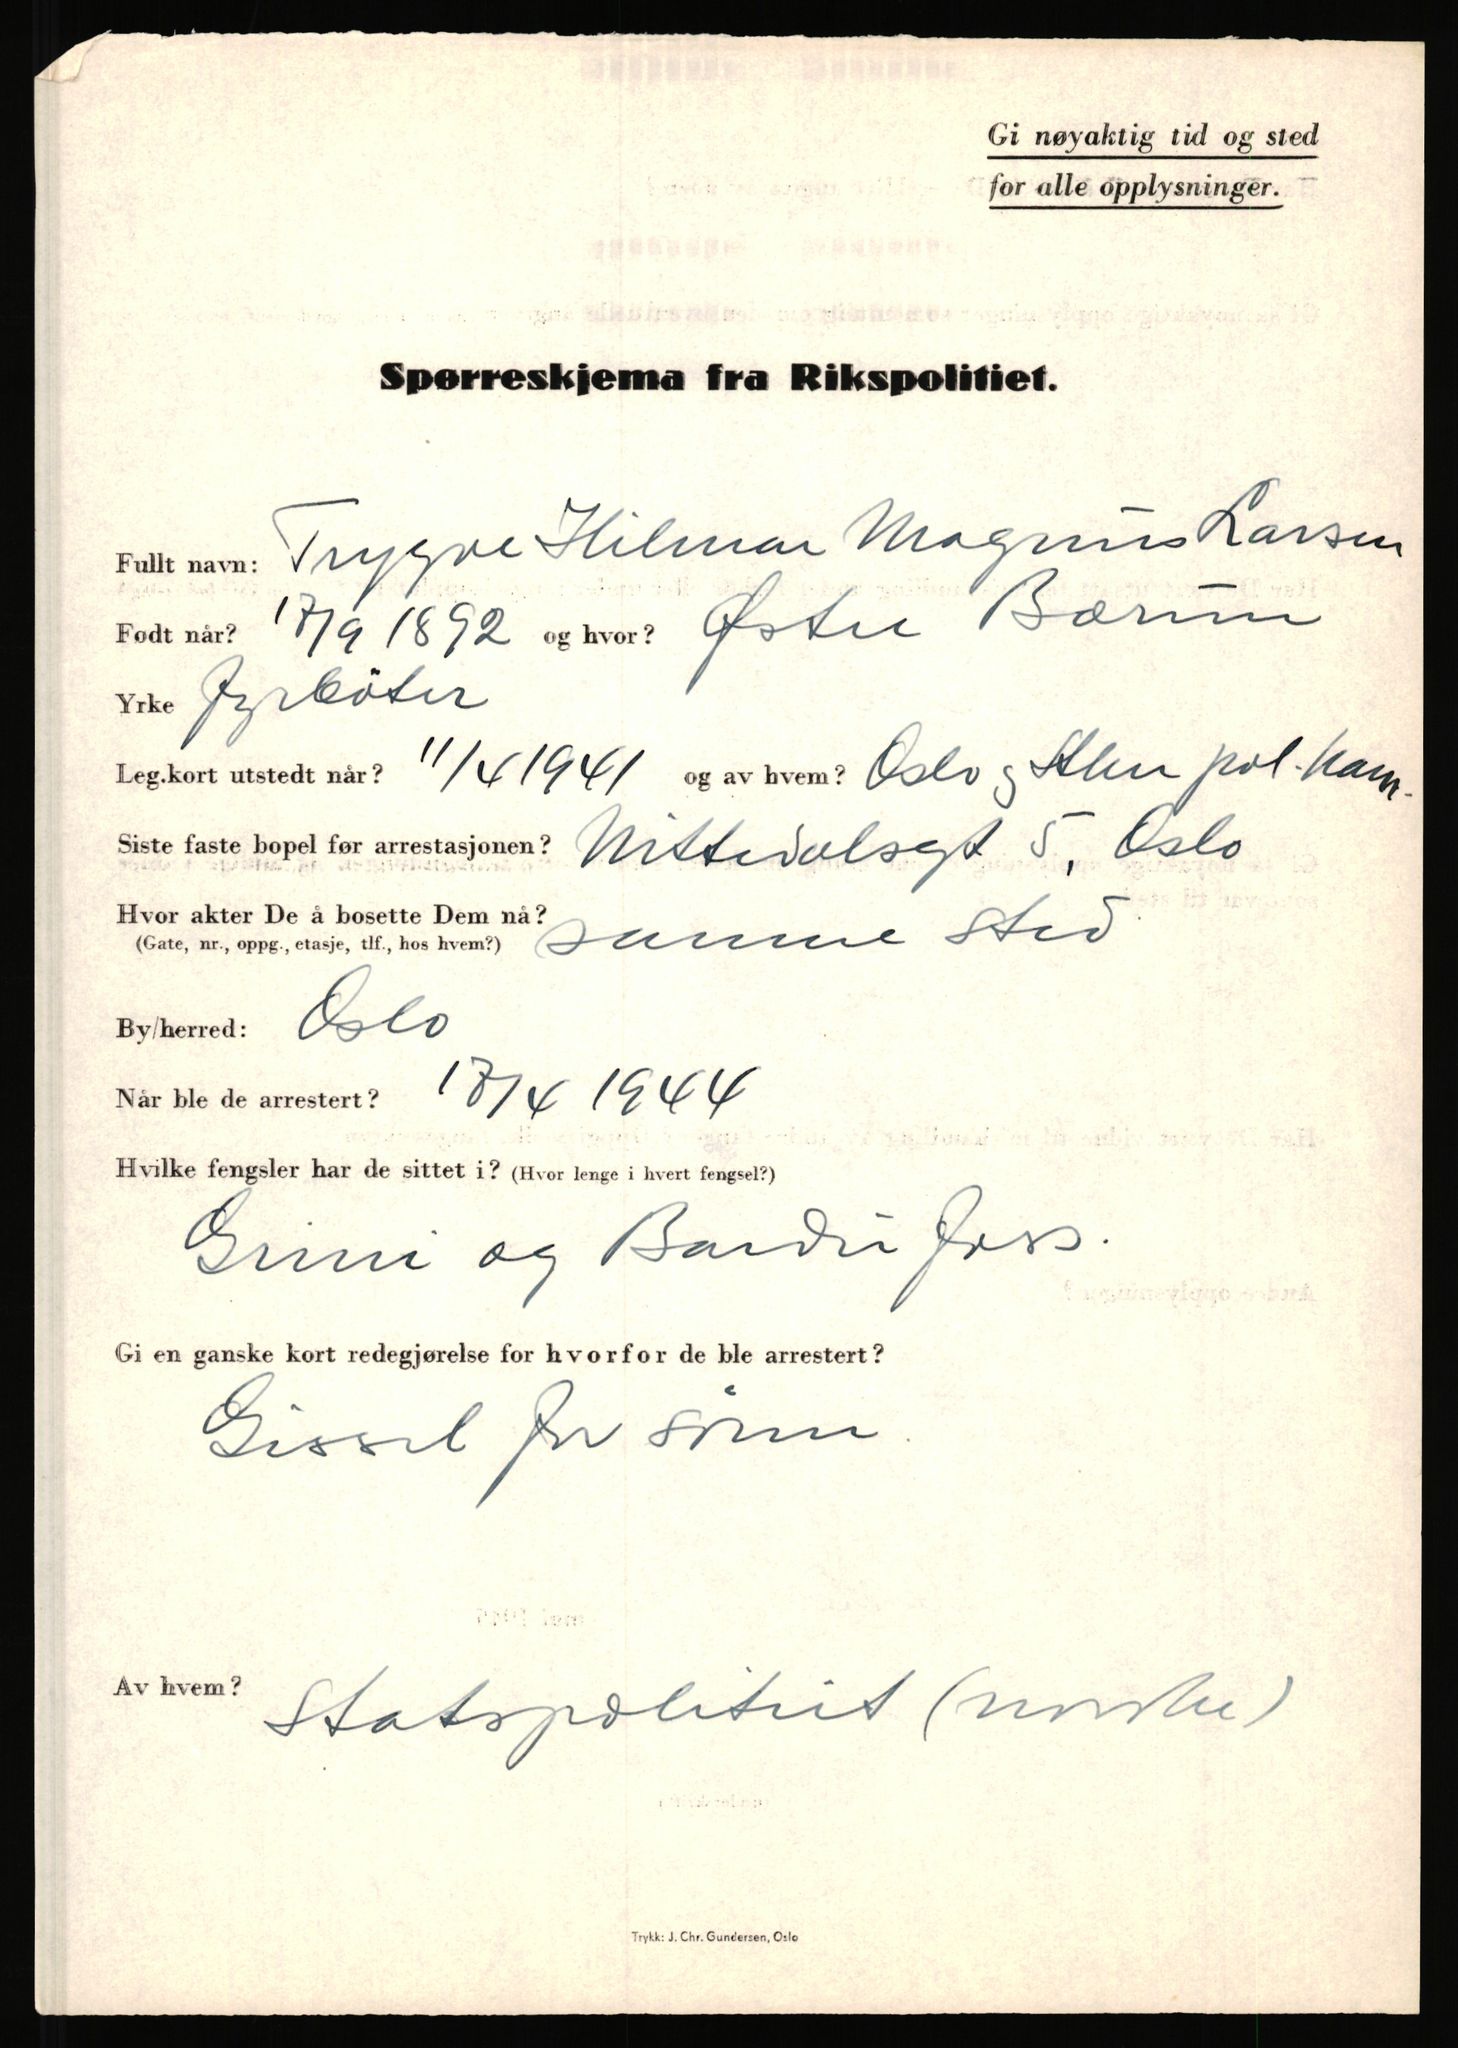 Gi nøyaktig tid og sted
for alle opplysninger.
Spørreskjema fra Rikspolitiet.
Fullt navn: Trygve Hilmar Magnus Larsen
Født når? 17/9 1892 og hvor? Østre Bærum
Yrke fyrbøter
Leg.kort utstedt når? 11/4 1941 og av hvem? Oslo og Aker pol.kam.
Siste faste bopel før arrestasjonen? Nittedalsgt 5, Oslo
Hvor akter De å bosette Dem nå? samme sted
(Gate, nr., oppg., etasje, tlf., hos hvem?)
By/herred: Oslo
Når ble de arrestert? 17/4 1944
Hvilke fengsler har de sittet i? (Hvor lenge i hvert fengsel?)
Grini og Bardufoss.
Gi en ganske kort redegjørelse for hvorfor de ble arrestert?
Gissel for sønn.
Av hvem? Statspolitiet (norske)
Trykk: J. Chr. Gundersen, Oslo